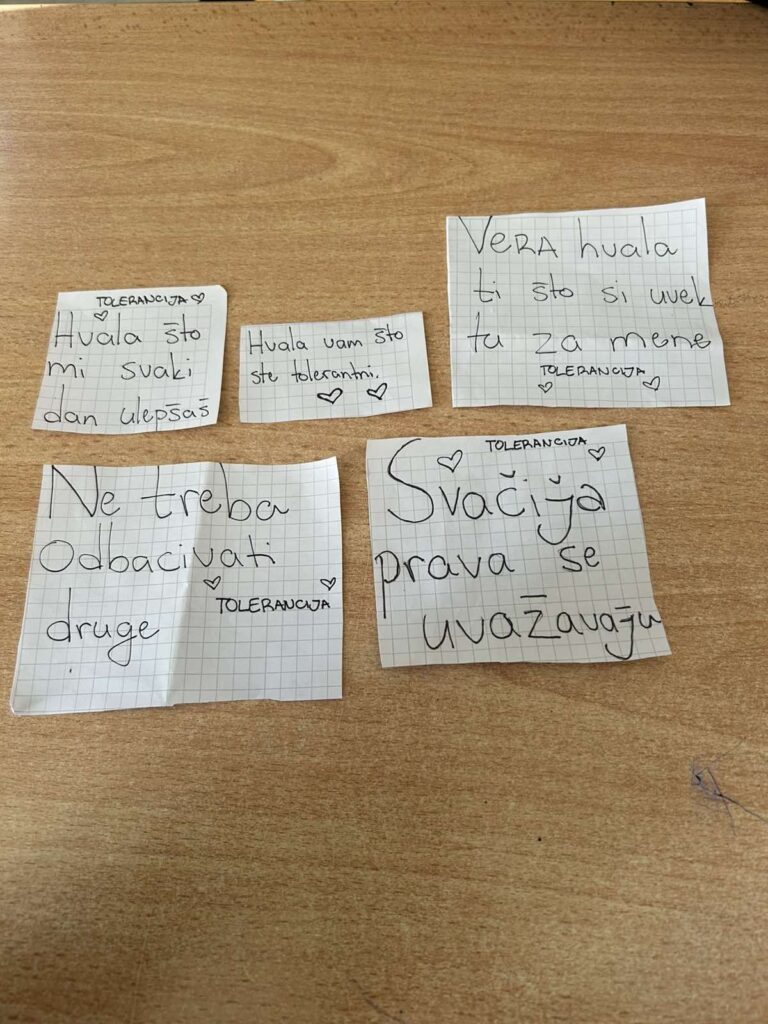 TOLERANCIJA ♡
♡
Hvala što
mi svaki
dan ulepšaš
Hvala vam što
ste tolerantni.
♡ ♡
VERA hvala
ti što si uvek
tu za mene
TOLERANCIJA
♡ ♡
Ne treba
Odbacivati
♡ ♡
TOLERANCIJA
druge
TOLERANCIJA
♡ ♡
Svačija
prava se
uvažavaju